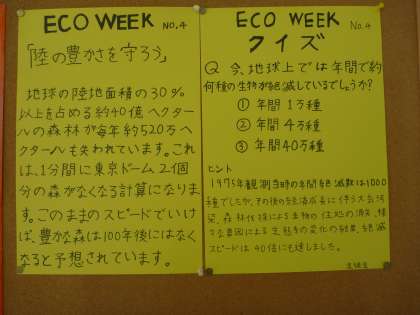 ECO WEEK NO.4
「陸の豊かさを守ろう」
地球の陸地面積の30%
以上を占める約40億ヘクター
ルの森林が毎年約520万ヘ
クタールも失われています。これ
は、1分間に東京ドーム2個
分の森がなくなる計算になりま
す。このままのスピードでいけ
ば、豊かな森は100年後にはなく
なると予想されています。
ECO WEEK No.4
クイズ
Q 今、地球上では年間で約
何種の生物が絶滅しているでしょうか?
① 年間1万種
② 年間4万種
③ 年間40万種
ヒント
1975年観測当時の年間絶滅数は1000
種でしたが、その後の経済成長に伴う大気汚
染、森林伐採による生物の住処の消失、様
々な要因による生態系の変化の結果、絶滅
スピードは40倍にも達しました。